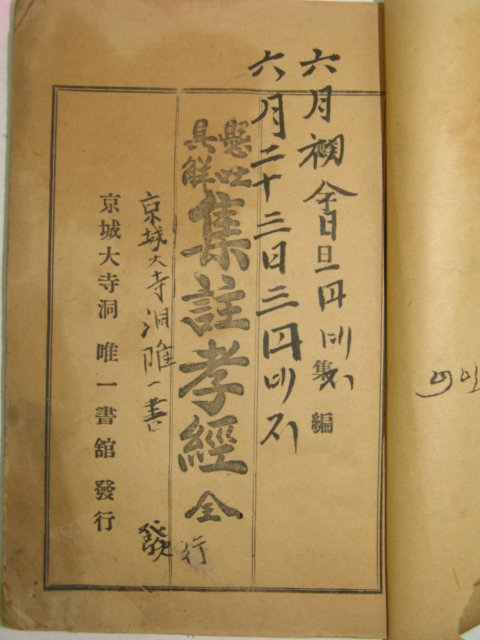 六月初
集編
六月二十三日三
懸吐
具解
集註孝經 全
京城大寺洞唯一書
發行
京城大寺洞 唯一書舘 發行